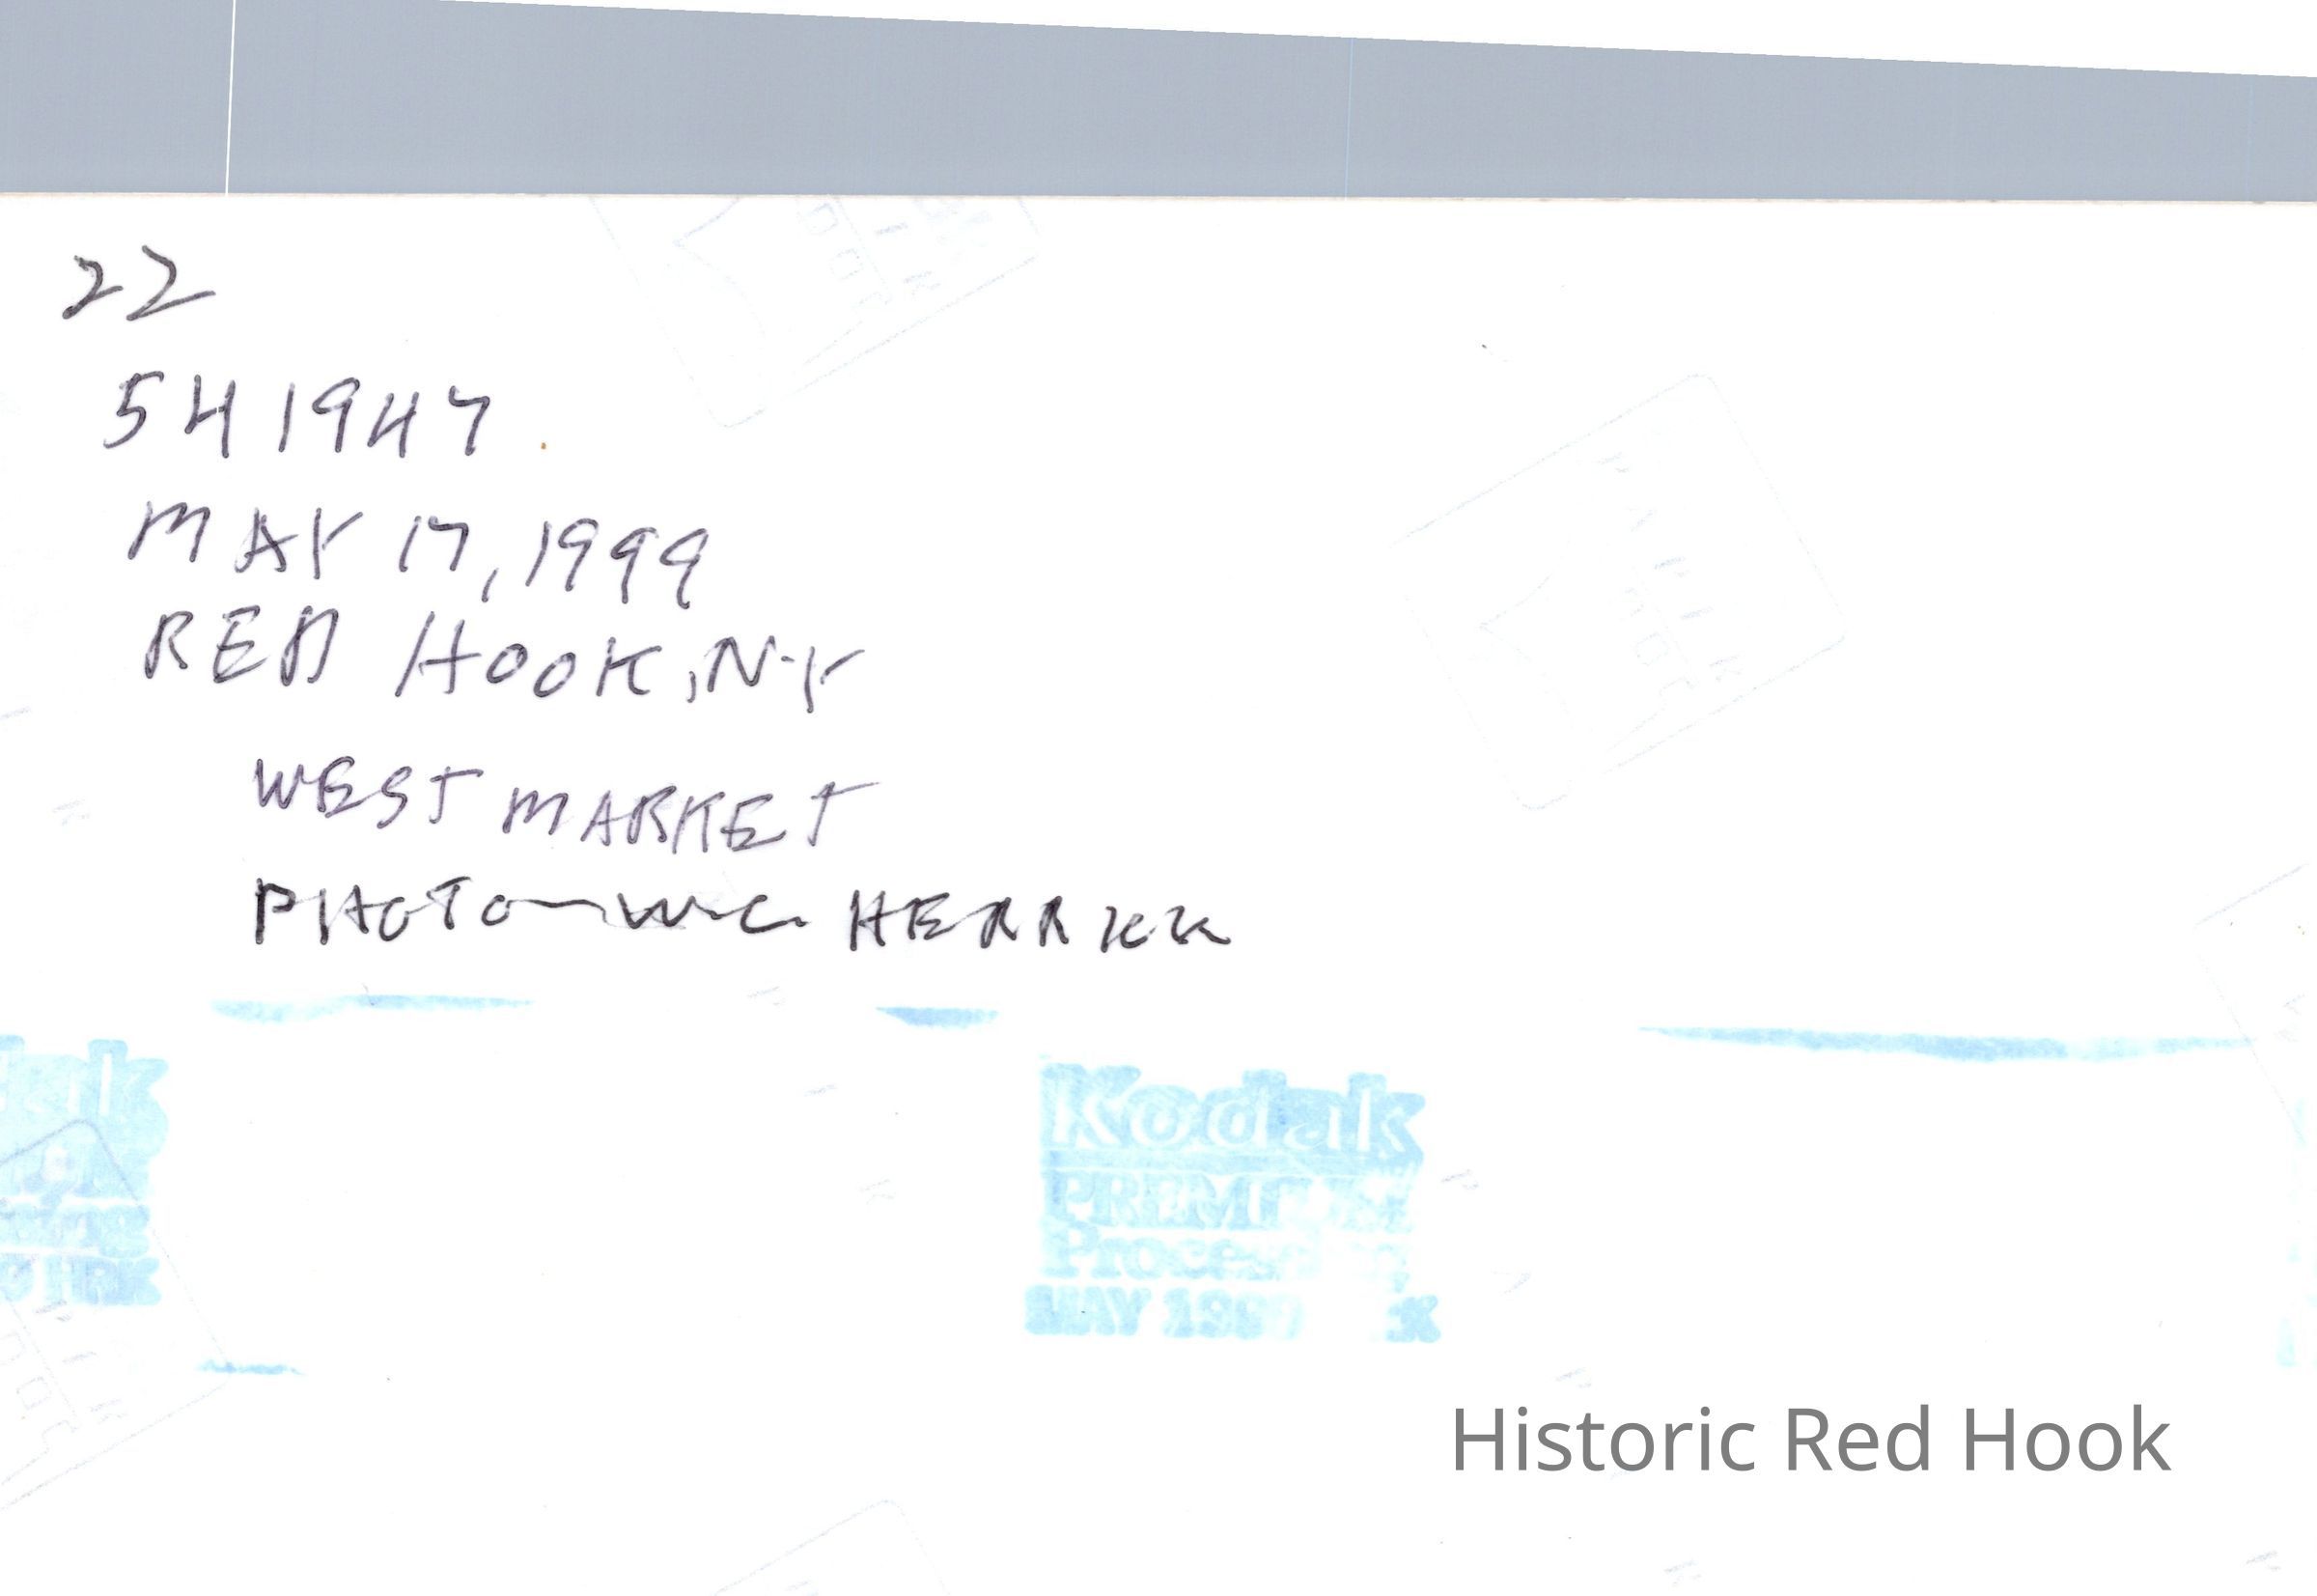 22
541947
MAY 17, 1999
RED HOOK, NY
WEST MARKET
PHOTO—W.C. HERRICK
Kodak
Kodak
PREMIUM
Processing
MAY 199
Historic Red Hook